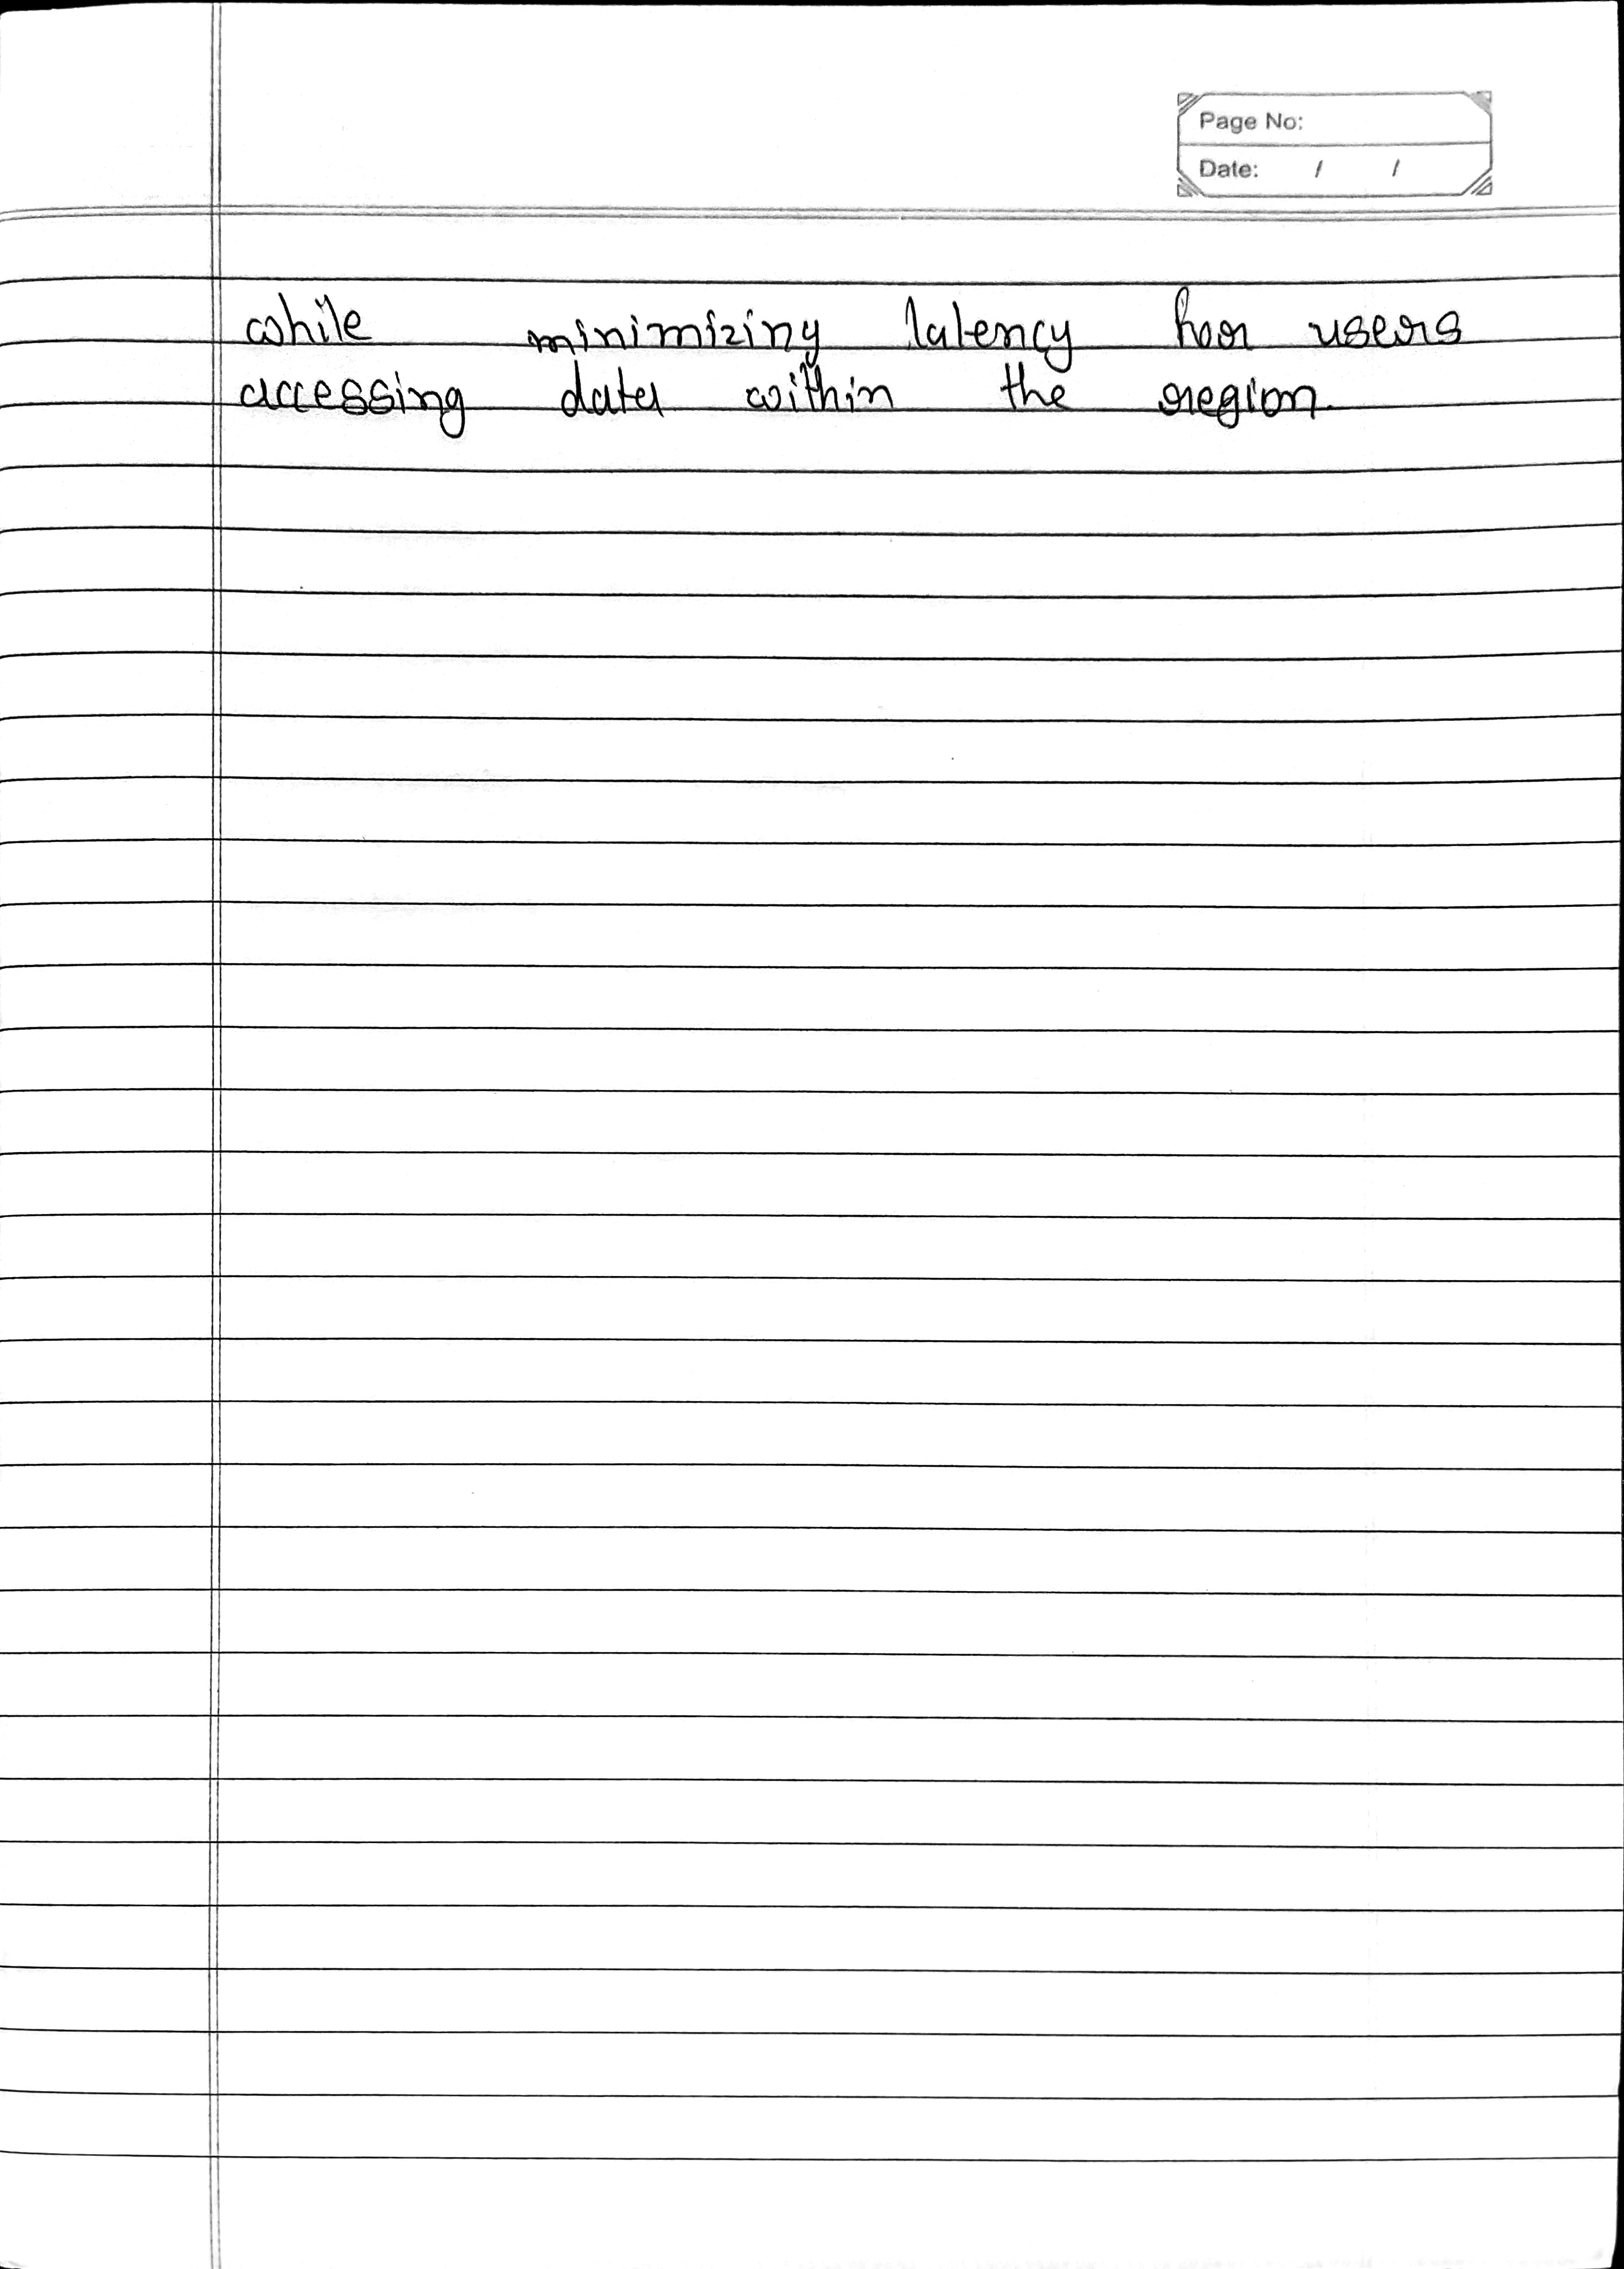 Page No:
Date: / /
while minimizing latency for users
accessing data within the region.